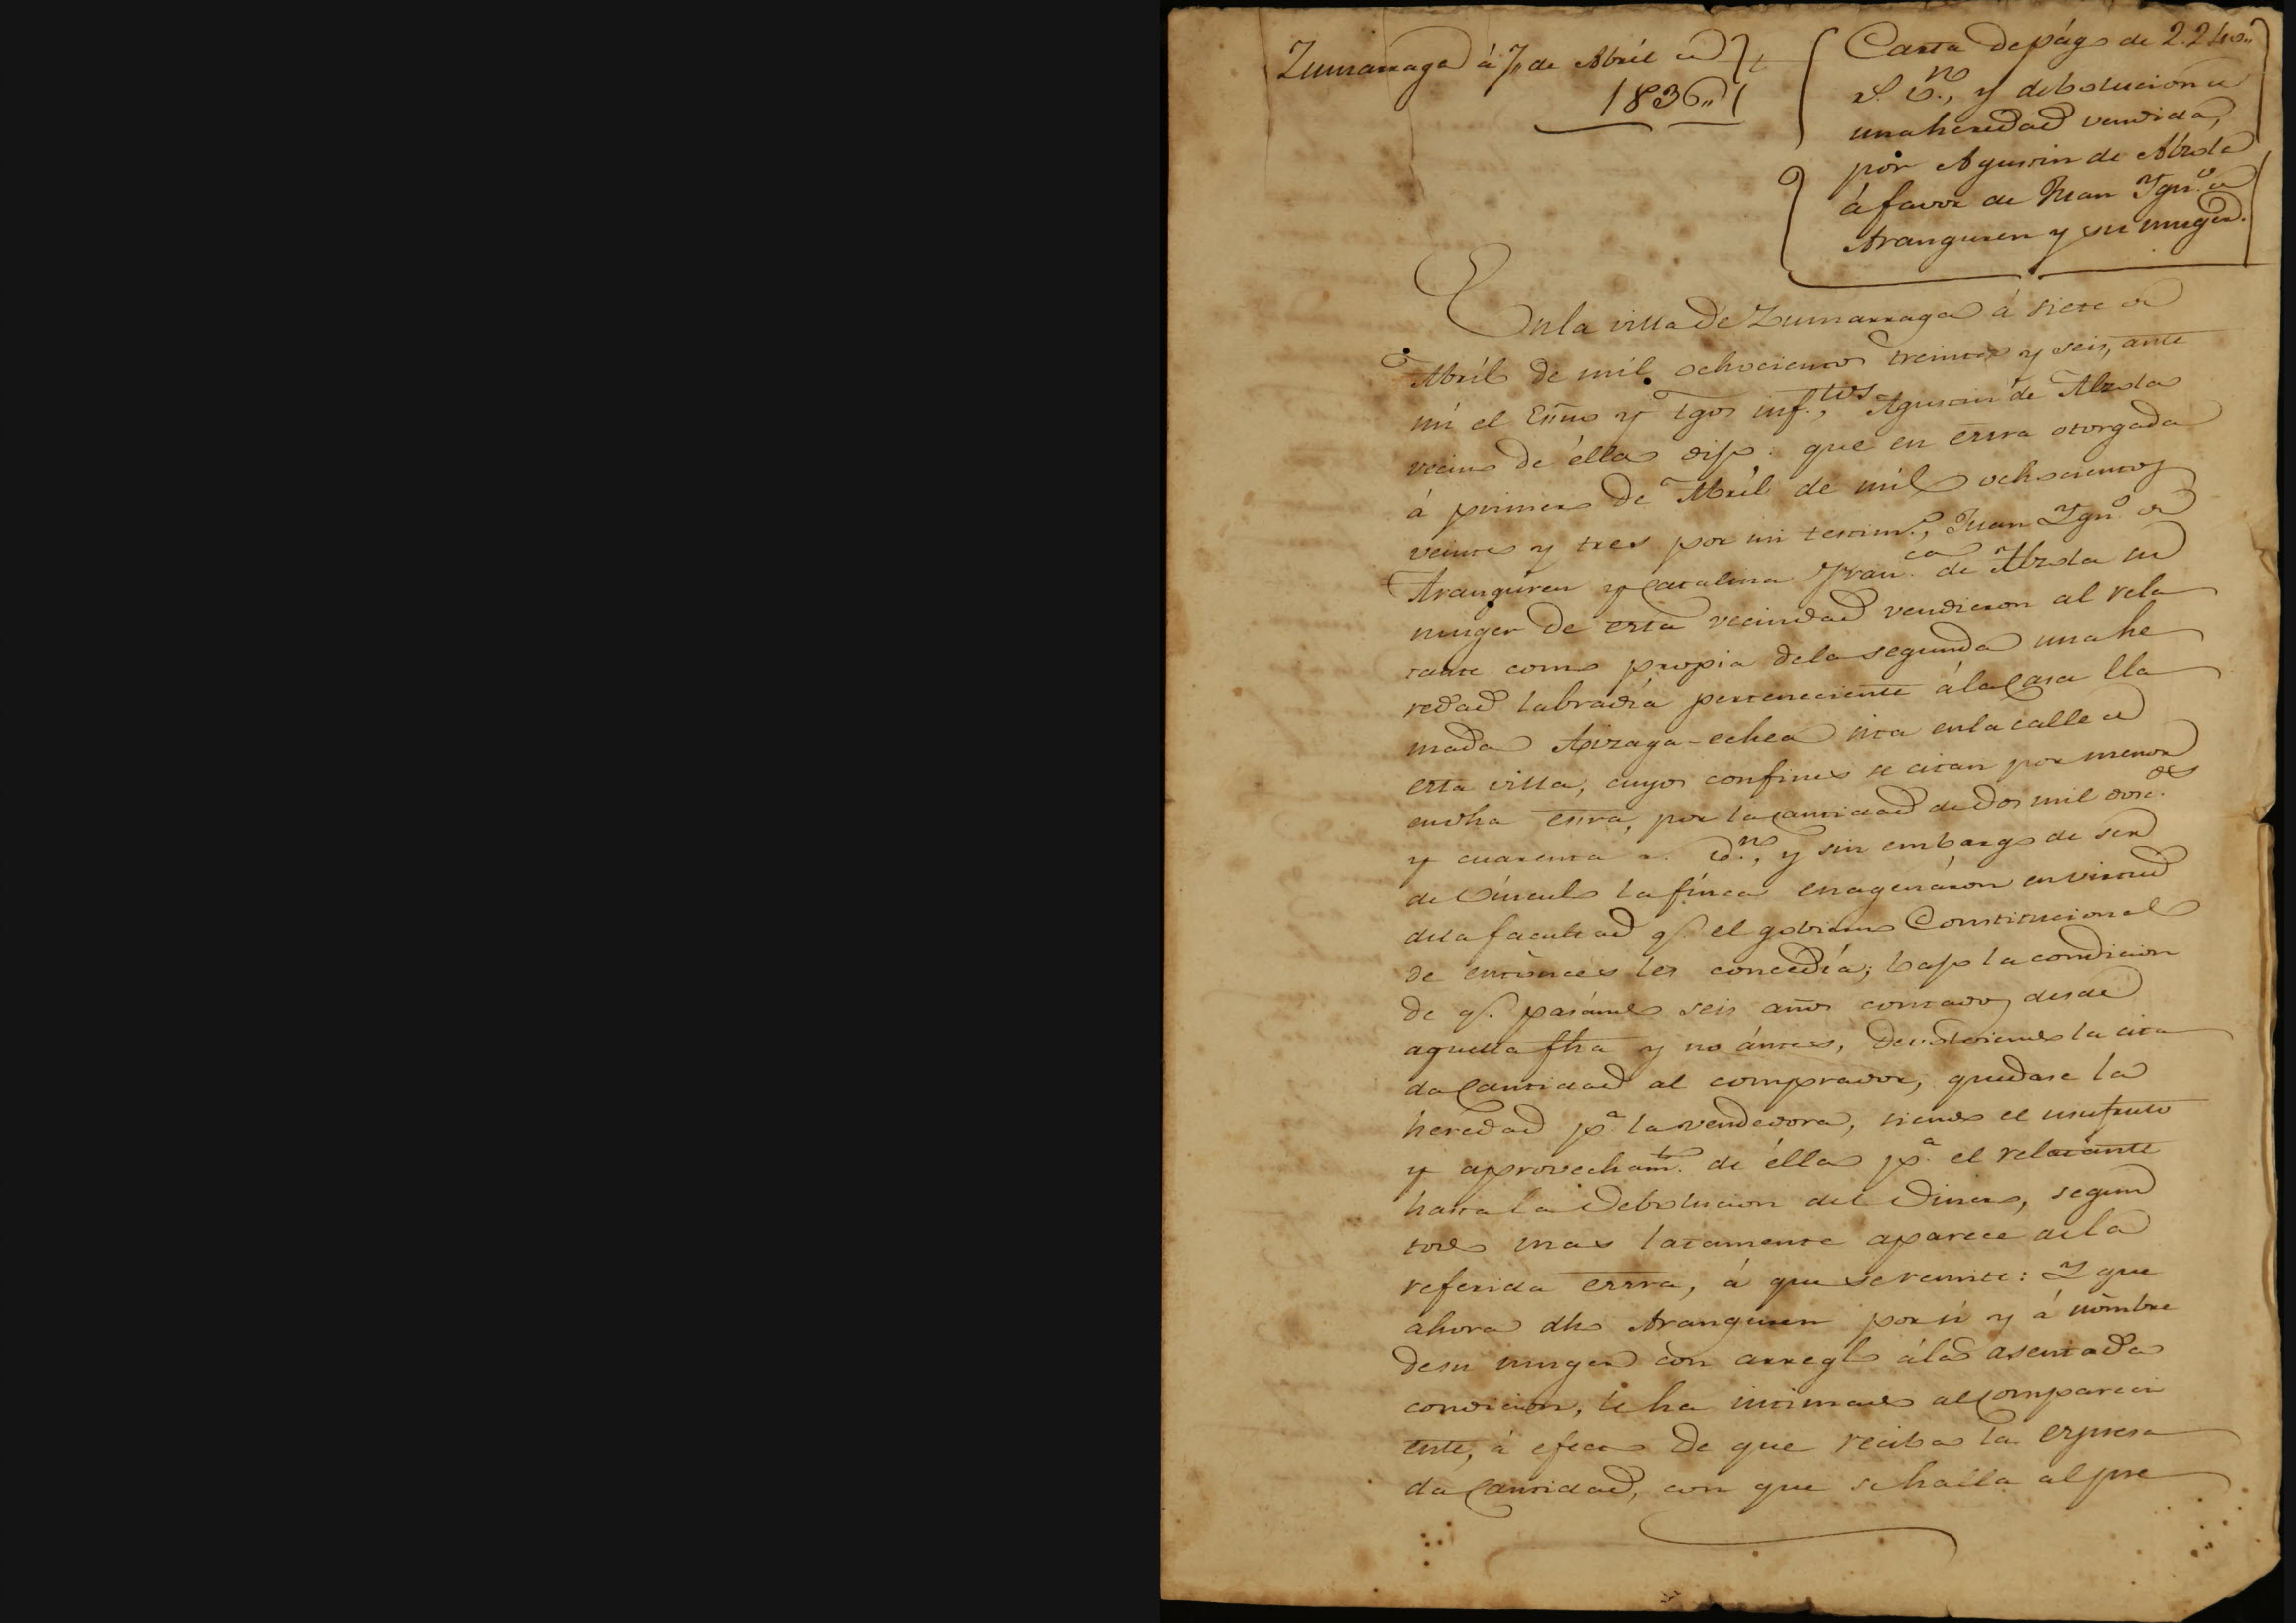 Zumarraga á 7,, de Abril de
1836,,
Carta de págo de 2.240,,
r.s v.n, y debolucion de
una heredad vendida,
por Agustin de Alzola
á favor de Juan Ygn.o de
Aranguren y su muger.
En la villa de Zumarraga á siete de
Abril de mil ochocientos treinta y seis, ante
mí el Essno y tgos inf.tos, Agustin de Alzola
vecino de élla dijo: que en essra otorgada
á primero de Abril de mil ochocientos
veinte y tres por mi testim.o, Juan Ygn.o de
Aranguren y Catalina Fran.ca de Alzola su
muger de esta vecindad vendieron al rela
tante como propia dela segunda una he
redad labradía perteneciente á la Casa lla
mada Aizaga-echea sita en la calle de
esta villa, cuyos confines se citan por menor
en dha essra, por la cantidad de dos mil dosc.os
y cuarenta r.s v.n, y sin embargo de ser
de vínculo la finca enagenáron en virtud
dela facultad q.e el gobierno Constitucional
de entónces les concedía; bajo la condicion
de q.e pasando seis años contados desde
aquella fha y no ántes, devolviendo la cita
da Cantidad al comprador, quedase la
heredad p.a la vendedora, siendo el usufruto
y aprovecham.to de élla p.a el relatante
hasta la debolucion del dinero, segun
todo mas latamente aparece dela
referida essra, á que se remite: Y que
ahora dho Aranguren por si y á nómbre
desu muger con arreglo á la asentada
condicion, le ha intimado al Compareci
ente, á efecto de que reciba la expresa
da Cantidad, con que se halla al pre